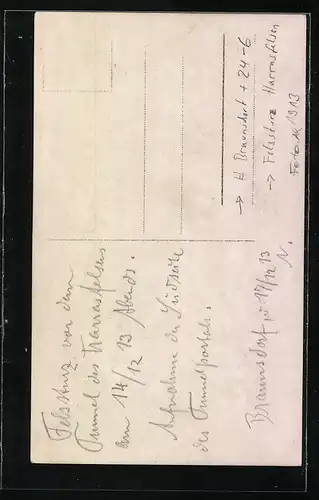 Felssturz vor dem
Tunnel des Harrasfelsens
am 14/12 13 Abends.
Aufnahme der Südseite
des Tunnelportals.
Braunsdorf, d 17/12 13
N.
→ H Braunsdorf + 24-6
→ Felssturz Harrasfelsen
Fotoak 1913